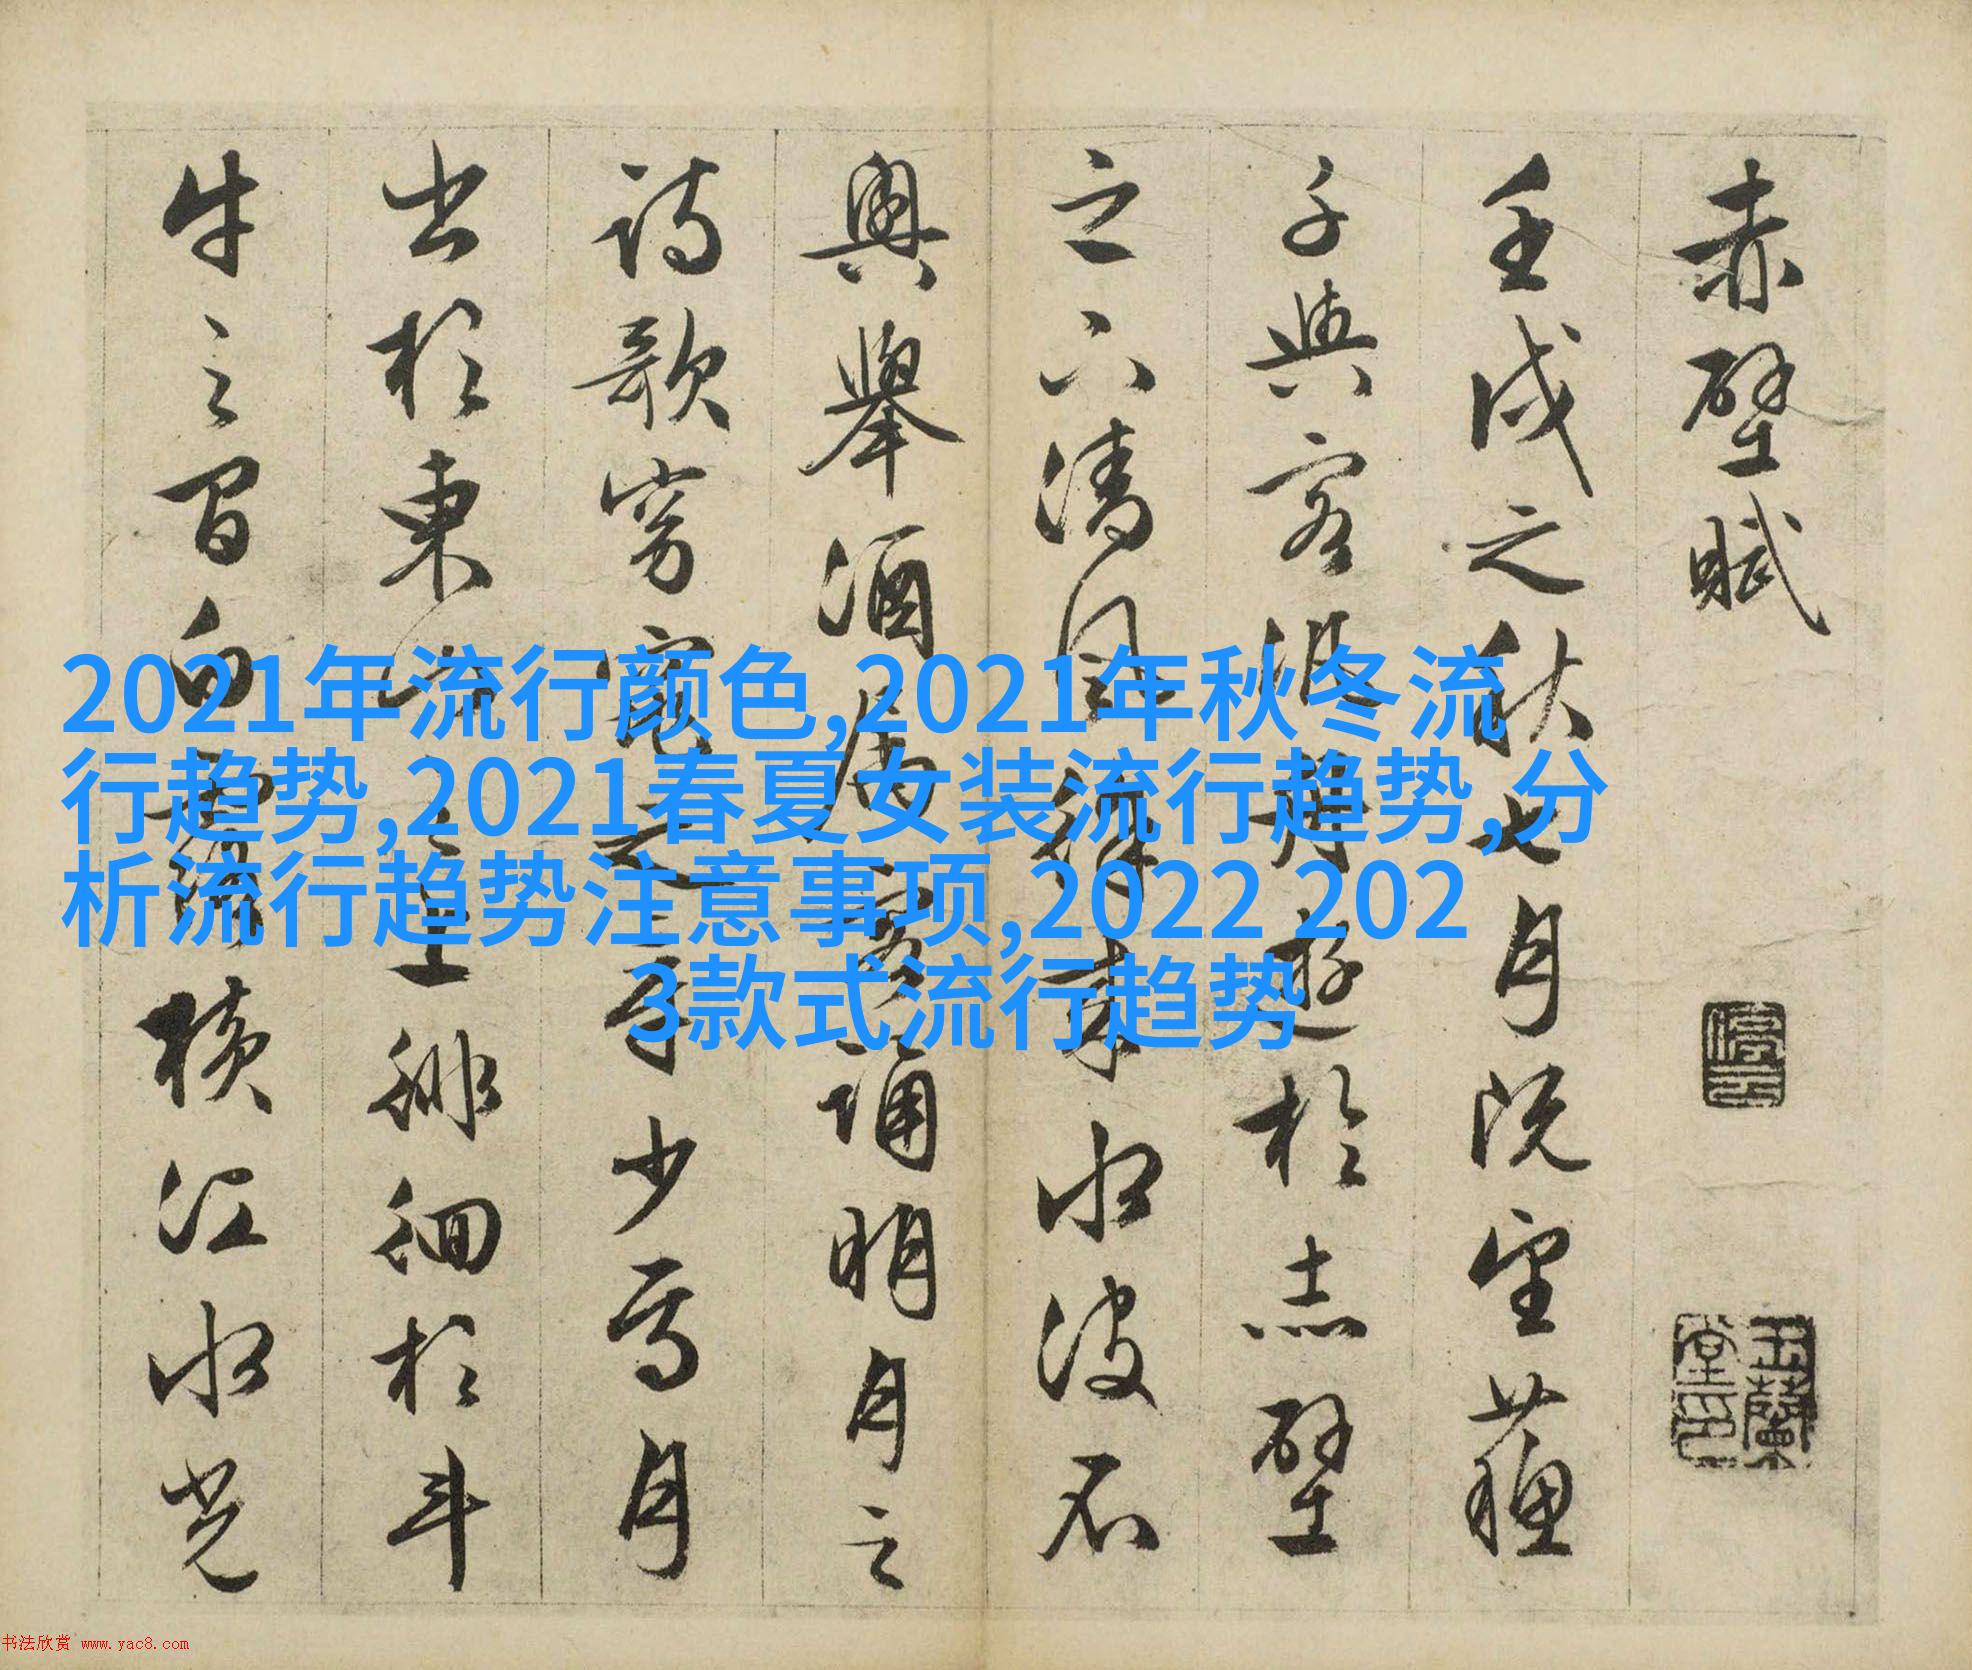 赤壁賦
壬戌之秋七月既望蘓
子與客泛舟遊於赤壁
之下清風徐來水波不
興舉酒屬客誦明月之
詩歌窈窕之章少焉月
出於東山之上徘徊於斗
牛之間白露橫江水光
停雲
玉蘭堂印
2021年流行颜色,2021年秋冬流
行趋势,2021春夏女装流行趋势,分
析流行趋势注意事项,2022 202
3款式流行趋势
书法欣赏 www.yac8.com